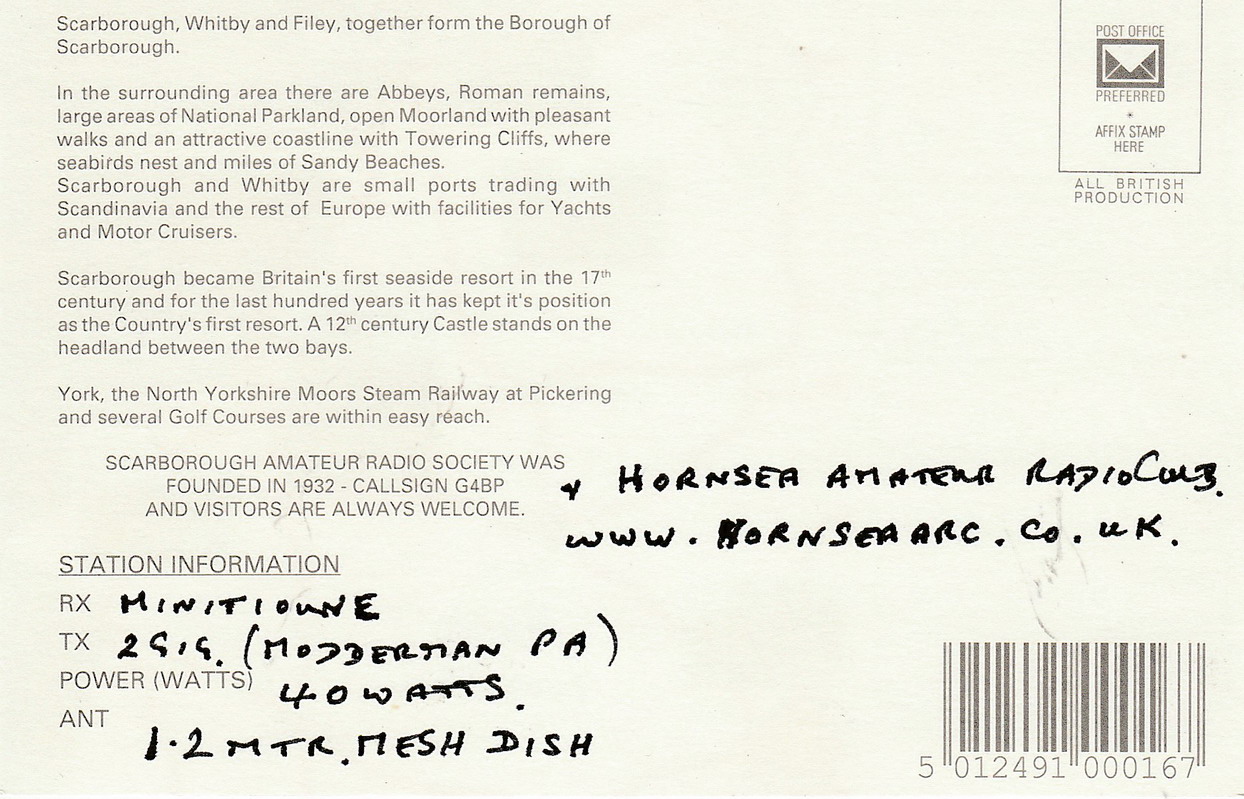 Scarborough, Whitby and Filey, together form the Borough of
Scarborough.
In the surrounding area there are Abbeys, Roman remains,
large areas of National Parkland, open Moorland with pleasant
walks and an attractive coastline with Towering Cliffs, where
seabirds nest and miles of Sandy Beaches.
Scarborough and Whitby are small ports trading with
Scandinavia and the rest of Europe with facilities for Yachts
and Motor Cruisers.
Scarborough became Britain's first seaside resort in the 17th
century and for the last hundred years it has kept it's position
as the Country's first resort. A 12th century Castle stands on the
headland between the two bays.
York, the North Yorkshire Moors Steam Railway at Pickering
and several Golf Courses are within easy reach.
SCARBOROUGH AMATEUR RADIO SOCIETY WAS
FOUNDED IN 1932 - CALLSIGN G4BP
AND VISITORS ARE ALWAYS WELCOME.
STATION INFORMATION
RX MINITIOUNE
TX 2GIG. (MODDERMAN PA)
POWER (WATTS) 40 WATTS.
ANT
1.2 MTR. MESH DISH
POST OFFICE
PREFERRED
*
AFFIX STAMP
HERE
ALL BRITISH
PRODUCTION
& HORNSEA AMATEUR RADIO CLUB.
WWW.HORNSEAARC.CO.UK.
5 012491 000167